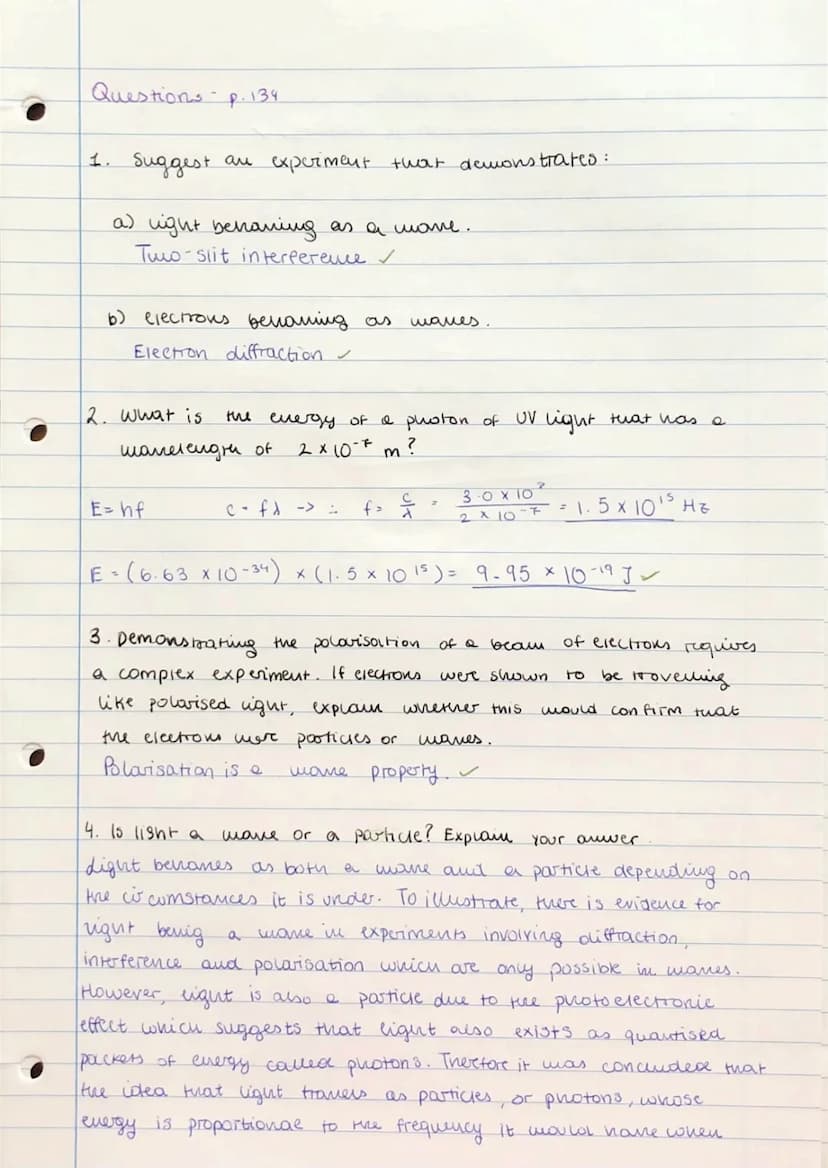 Questions - p.134
1. Suggest an experiment that demonstrates:
a) light behaving as a wave.
Two-slit interference ✓
b) electrons behaving as waves.
Electron diffraction ✓
2. What is the energy of a photon of UV light that has a
wavelength of 2 × 10⁻⁷ m?
E = hf c = fλ -> ∴ f = c/λ = 3.0 × 10⁸/2 × 10⁻⁷ = 1.5 × 10¹⁵ Hz
E = (6.63 × 10⁻³⁴) × (1.5 × 10¹⁵) = 9.95 × 10⁻¹⁹ J ✓
3. Demonstrating the polarisation of a beam of electrons requires
a complex experiment. If electrons were shown to be travelling
like polarised light, explain whether this would confirm that
the electrons were particles or waves.
Polarisation is a wave property. ✓
4. Is light a wave or a particle? Explain your answer.
Light behaves as both a wave and a particle depending on
the circumstances it is under. To illustrate, there is evidence for
light being a wave in experiments involving diffraction,
interference and polarisation which are only possible in waves.
However, light is also a particle due to the photoelectronic
effect which suggests that light also exists as quantised
packets of energy called photons. Therefore it was concluded that
the idea that light travels as particles, or photons, whose
energy is proportional to the frequency it would have when